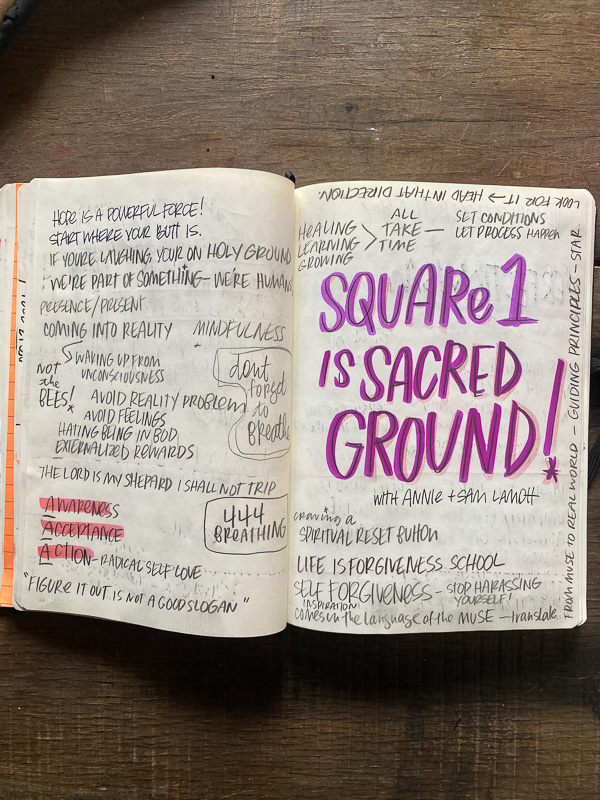 HOPE IS A POWERFUL FORCE!
START WHERE YOUR BUTT IS.
IF YOU'RE LAUGHING, YOUR ON HOLY GROUND
WE'RE PART OF SOMETHING - WE'RE HUMANS
PRESENCE/PRESENT
COMING INTO REALITY MINDFULNESS
WAKING UP FROM
UNCONSCIOUSNESS
not
the
BEES!
AVOID REALITY PROBLEM
AVOID FEELINGS
HATING BEING IN BOD
EXTERNALIZED REWARDS
dont
forget
to
BREATHE
THE LORD IS MY SHEPARD I SHALL NOT TRIP
AWARENESS
ACCEPTANCE
ACTION - RADICAL SELF LOVE
444
BREATHING
"FIGURE IT OUT IS NOT A GOOD SLOGAN"
LOOK FOR IT → HEAD IN THAT DIRECTION.
HEALING
LEARNING
GROWING
> ALL
TAKE —
TIME
SET CONDITIONS
LET PROCESS HAPPEN
SQUARe 1
IS SACRED
GROUND!
with ANNIE + SAM LAMOTT
SPIRITUAL RESET BUTTON
LIFE IS FORGIVENESS SCHOOL
SELF FORGIVENESS - STOP HARASSING
YOURSELF!
INSPIRATION
COMES in the LANGUAGE of the MUSE — translate
FROM MUSE TO REAL WORLD - GUIDING PRINCIPLES - STAR